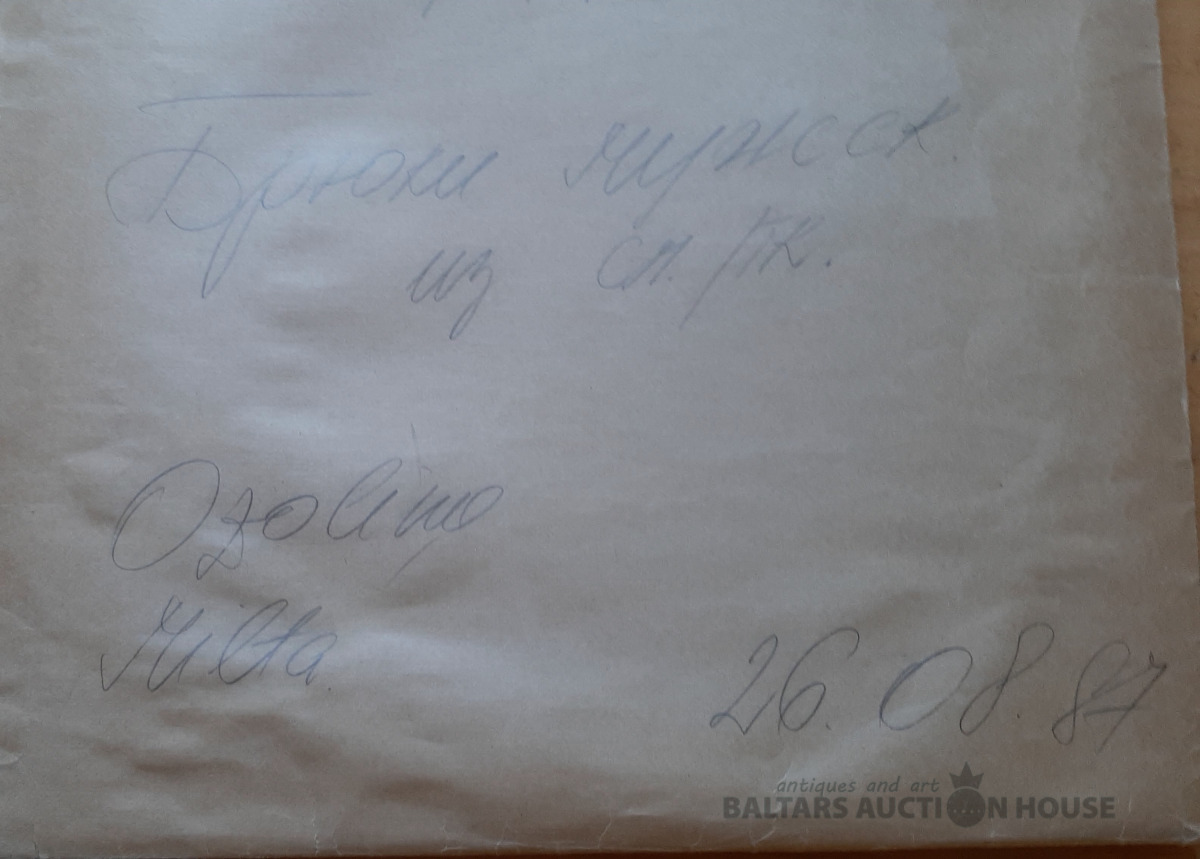 Брюки мужск.
из сл. тк.
Ozoliņa
Milta
26.08.87
antiques and art
BALTARS AUCTION HOUSE